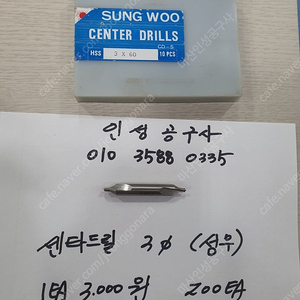 SUNG WOO
CENTER DRILLS
CD-S
HSS 3 X 60 10 PCS
인성공구사
010 3588 0335
센타드릴 3∅ (성우)
1EA 3.000원 200EA